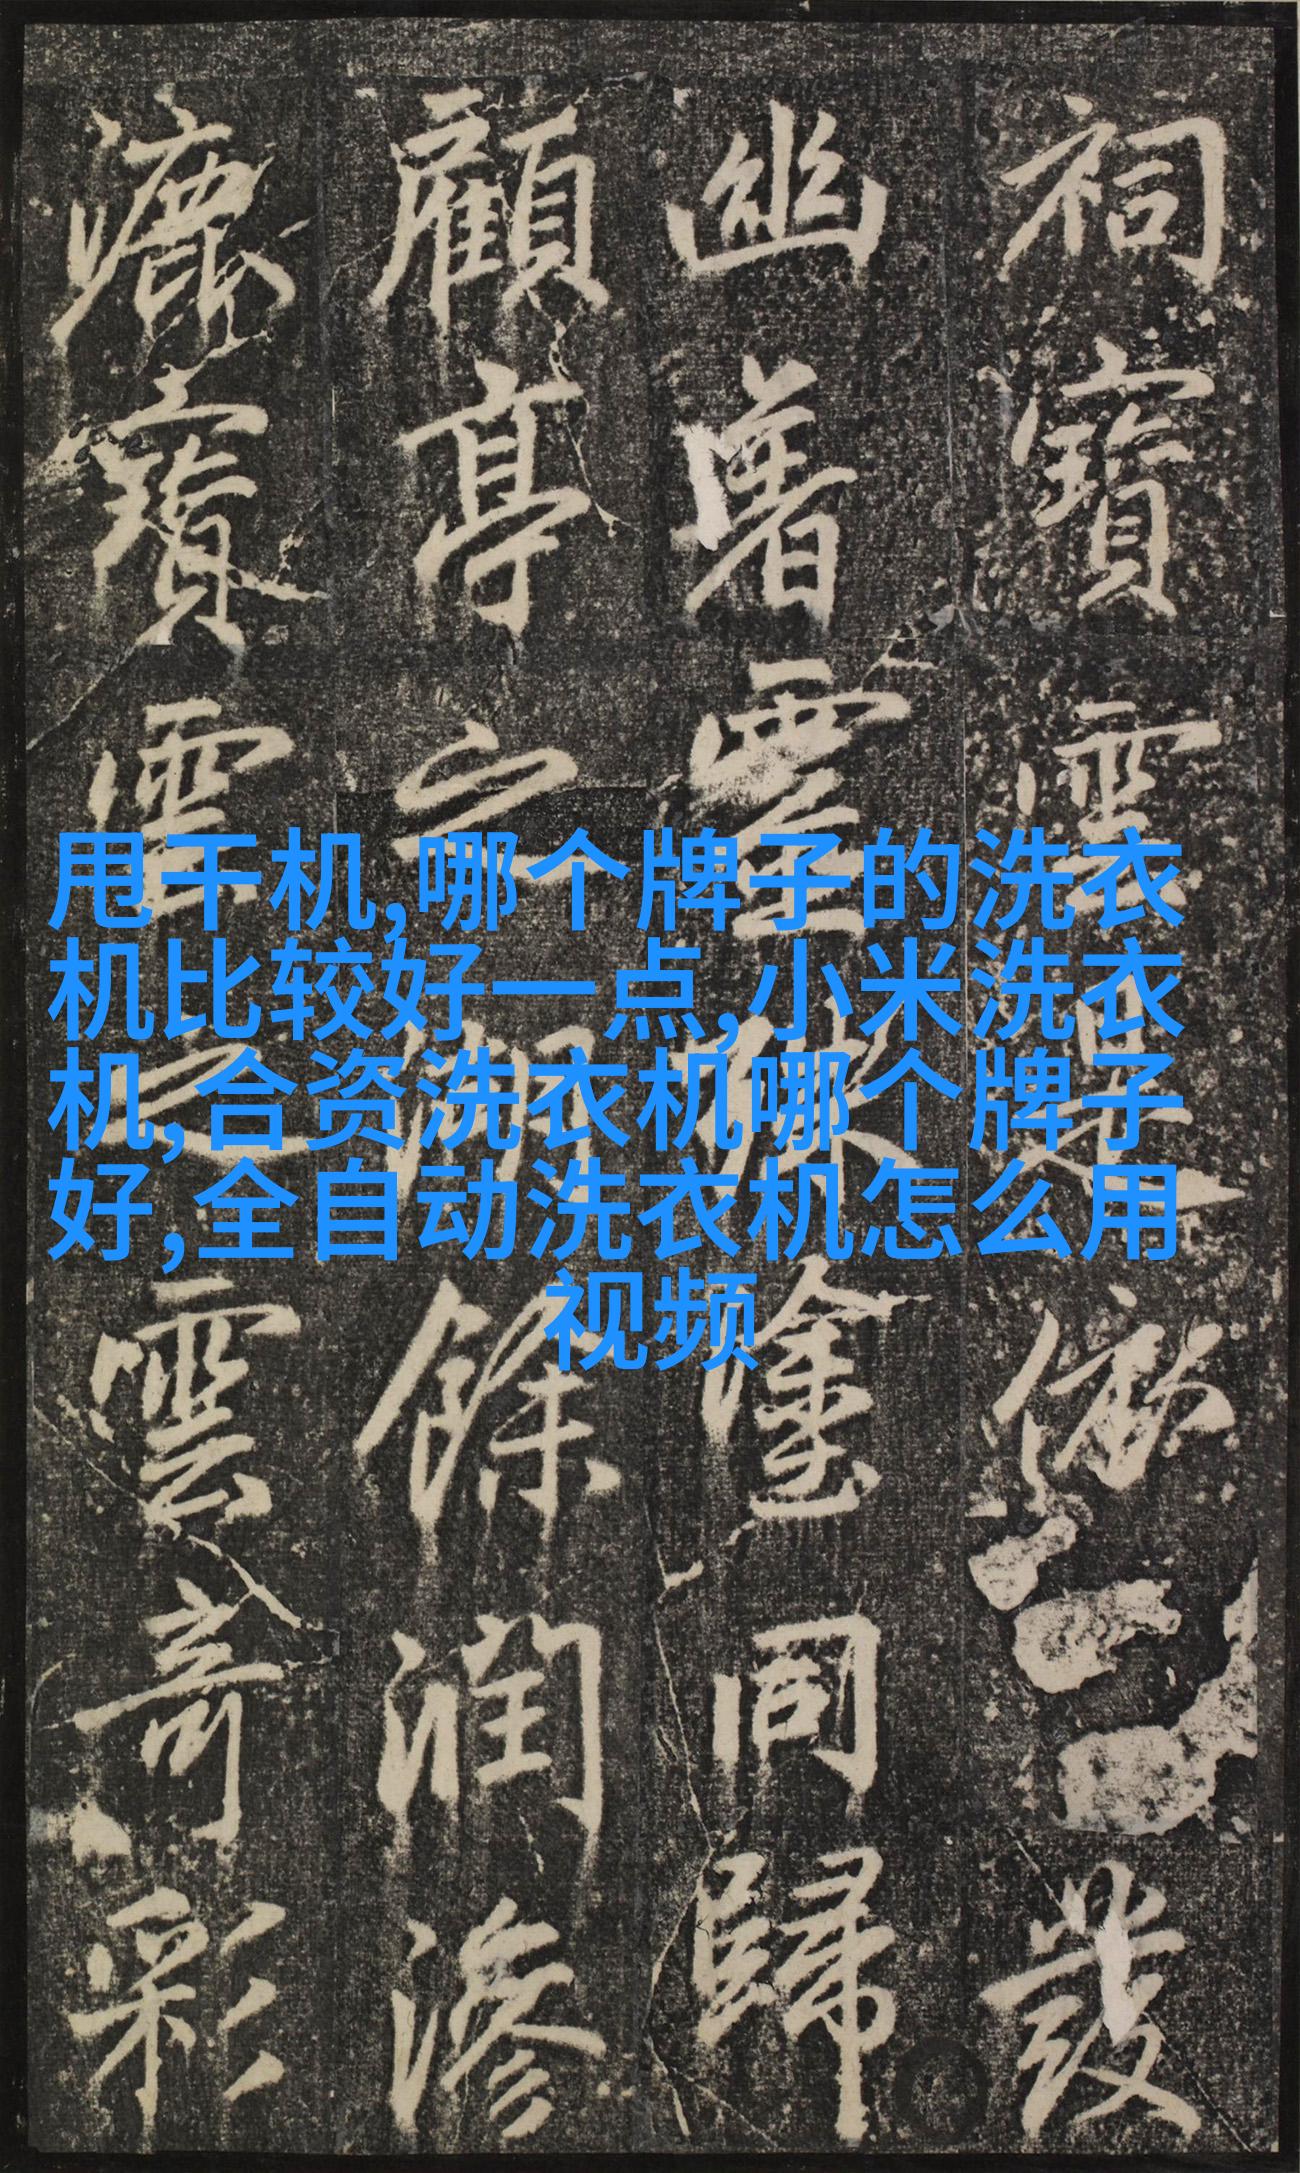 甩干机,哪个牌子的洗衣
机比较好一点,小米洗衣
机,合资洗衣机哪个牌子
好,全自动洗衣机怎么用
视频
祠寶發
幽塗同歸
顧亭之餘潤滲
漉寶之雲奇彩